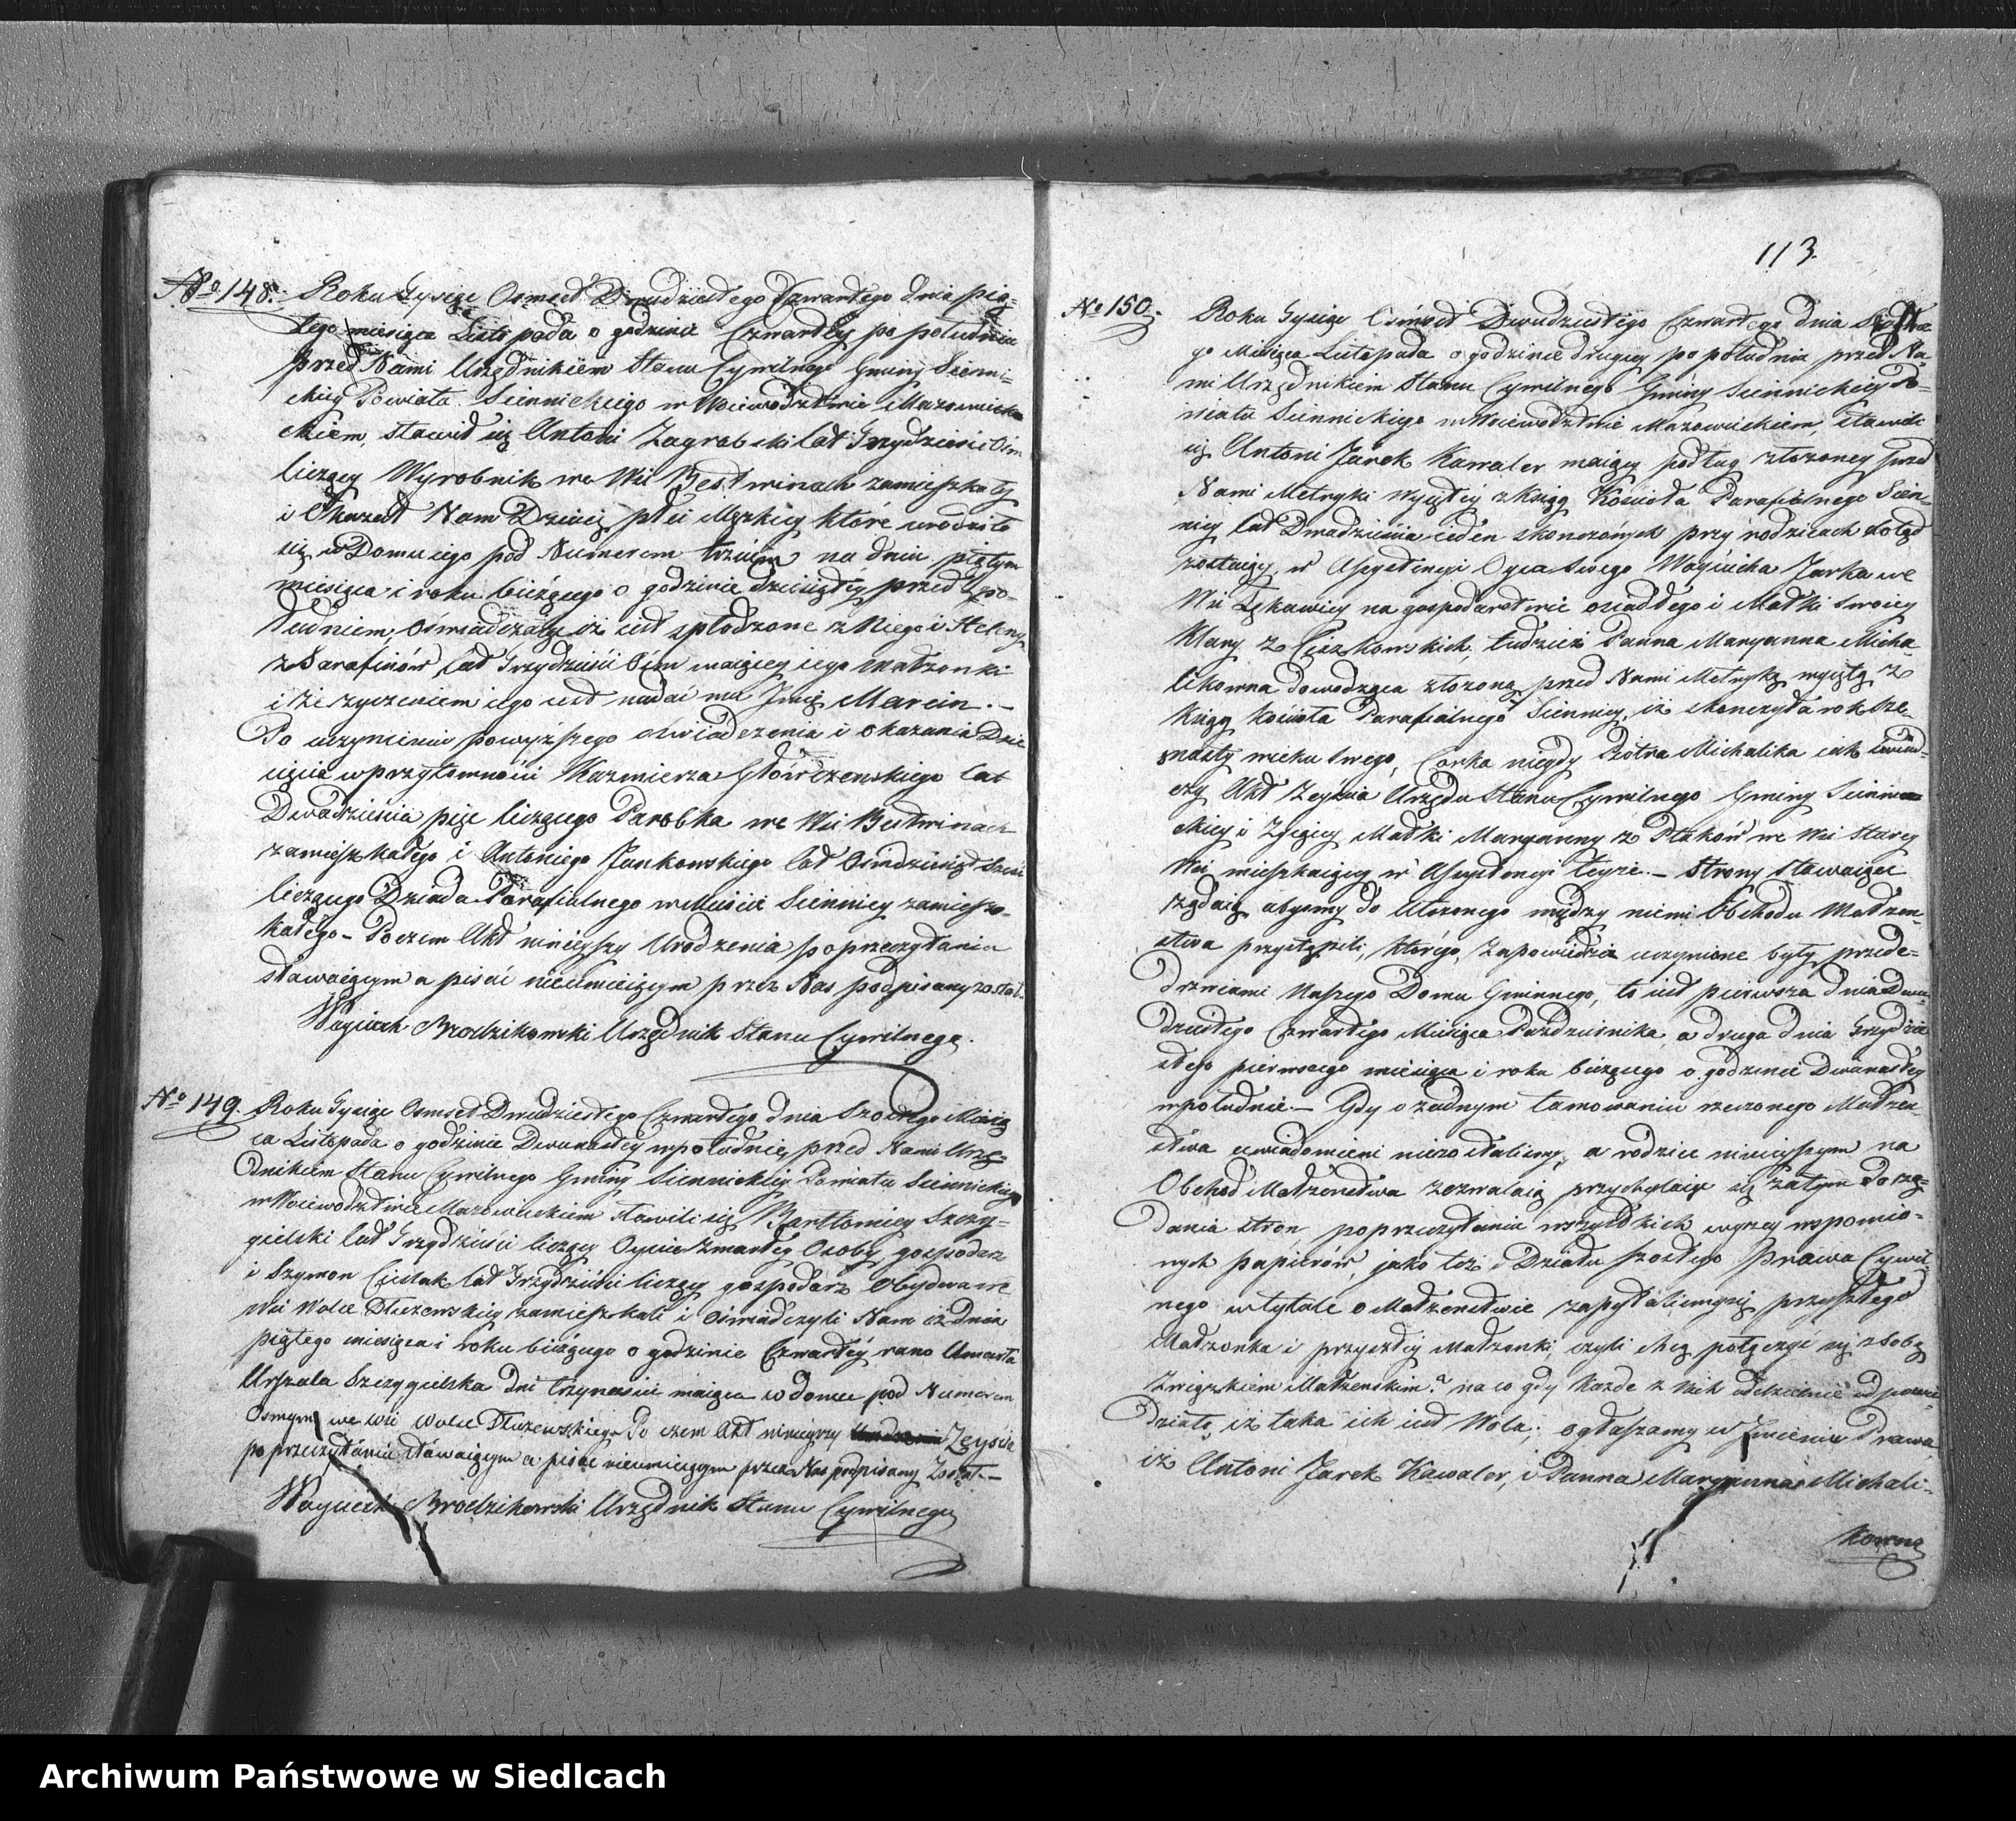 No 148. Roku Tysiąc Osmset Dwudziestego Czwartego dnia Pią-
tego miesiąca Listopada o godzinie Czwartey po południu
przed Nami Urzędnikiem Stanu Cywilnego Gminy Sienni-
ckiey Powiatu Siennickiego w Woiewodztwie Mazowiec-
ckiem, stawił się Antoni Zagrabski lat Trzydzieści Ośm
liczący Wyrobnik we Wsi Bestwinach zamieszkały
i Okazał Nam Dziecię płci Męzkiey które urodziło
się w Domu iego pod Numerem trzecim na dniu piątym
miesiąca i roku bieżącego o godzinie dziesiątey przed Po-
łudniem, Oświadczaiąc iż iest spłodzone z Niego i Heleny
z Sarafinów, lat Trzydzieści Ośm maiącey iego małżonki
i że życzeniem iego iest nadać mu Imię Marcin. –
Po uczynieniu powyższego oświadczenia i okazaniu Dzie
cięcia w przytomności Kazimierza Głowczewskiego lat
Dwadzieścia pięć liczącego Parobka we Wsi Bestwinach
zamieszkałego i Antoniego Jankowskiego lat Ośmdziesiąt Sześć
liczącego Dziada Parafialnego w Mieście Siennicy zamiesz-
kałego – Poczem Akt ninieyszy Urodzenia po przeczytaniu
stawaiącym a pisać nieumieiącym przez Nas podpisany został.
Woyciech Brodzikowski Urzędnik Stanu Cywilnego.
No 149. Roku Tysiąc Osmset Dwudziestego Czwartego dnia Szostego Miesią
ca Listopada o godzinie Dwunastey w południe, przed Nami Urzę-
dnikiem Stanu Cywilnego Gminy Siennickiey Powiatu Siennickiego
w Woiewodztwie Mazowieckiem stawili się Bartłomiey Szczy-
gielski lat Trzydzieści liczący Oyciec zmarłey Osoby, gospodarz
i Szymon Cieslak lat Trzydzieści liczący gospodarz Obydwa we
Wsi Wolce Dłużewskiey zamieszkali i Oświadczyli Nam iż dnia
piątego miesiąca i roku bieżącego o godzinie Czwartéy rano Umarła
Urszula Szczygielska dni trzynaście maiąca w domu pod Numerem
Osmym we wsi Wolce Dłużewskiego Po czem Akt ninieyszy Zeyścia
po przeczytaniu stawaiącym a pisać nieumieiącym przez Nas podpisany Został. –
Woyciech Brodzikowski Urzędnik Stanu Cywilnego
113.
No 150. Roku Tysiąc Ośmset Dwudziestego Czwartego dnia
go Miesiąca Listopada o godzinie drugiey po południu przed Na-
mi Urzędnikiem Stanu Cywilnego Gminy Siennickiey Po-
wiatu Siennickiego w Woiewodztwie Mazowieckiem, stawili
się Antoni Jarek Kawaler maiący podług złożoney przed
Nami Metryki wyiętéy z Ksiąg Kościoła Parafialnego Sien-
nicy lat Dwadzieścia ieden skonczonych przy rodzicach dotąd
zostaiący, w Assystencyi Oyca Swego Woyciecha Jarka we
Wsi Łękawicy na gospodarstwie osiadłego i Matki swoiey
Klary z Cieszkowskich, tudzież Panna Maryanna Micha
likowna dowodząca złożoną przed Nami Metryką wyiętą z
Ksiąg Kościoła Parafialnego Siennicy, iż skonczyła rok Sze-
snasty wieku swego, Corka niegdy Piotra Michalika iak świad-
czy Akt Zeyścia Urzędu Stanu Cywilnego Gminy Sienni
ckiey i Żyiącey Matki Maryanny z Ptaków we Wsi Starey
Wsi mieszkaiącey w Assystencyi teyże. – Strony stawaiące
żądaią abyśmy do Ułożonego między niemi Obchodu Małżeń-
stwa przystąpili, którego Zapowiedzie uczynione były przede-
drzwiami Naszego Domu Gminnego, to iest pierwsza dnia Dwu-
dziestego Czwartego Miesiąca Października, a druga dnia Trzydzie
stego pierwszego miesiąca i roku bieżącego o godzinie Dwunastey
w południe. – Gdy o żadnym tamowaniu rzeczonego Małżen-
stwa uwiadomieni niezostaliśmy, a rodzice ninieyszym na
Obchód Małżeństwa zezwalaią przychylaiąc się zatym do żą-
dania stron po przeczytaniu wszystkich wyżey wspomnio-
nych papierów, jako też i Działu szostego Prawa Cywil-
nego w tytule o Małżeństwie zapytaliśmy się przyszłego
Małżonka i przyszłey Małżonki, czyli chcą połączyć się z sobą
Związkiem Małżeńskim? na co gdy każde z nich oddzielnie odpowie
działo, iż taka ich iest Wola; ogłaszamy w Imieniu Prawa
iż Antoni Jarek Kawaler, i Panna Maryanna Michali-
kowna
Archiwum Państwowe w Siedlcach